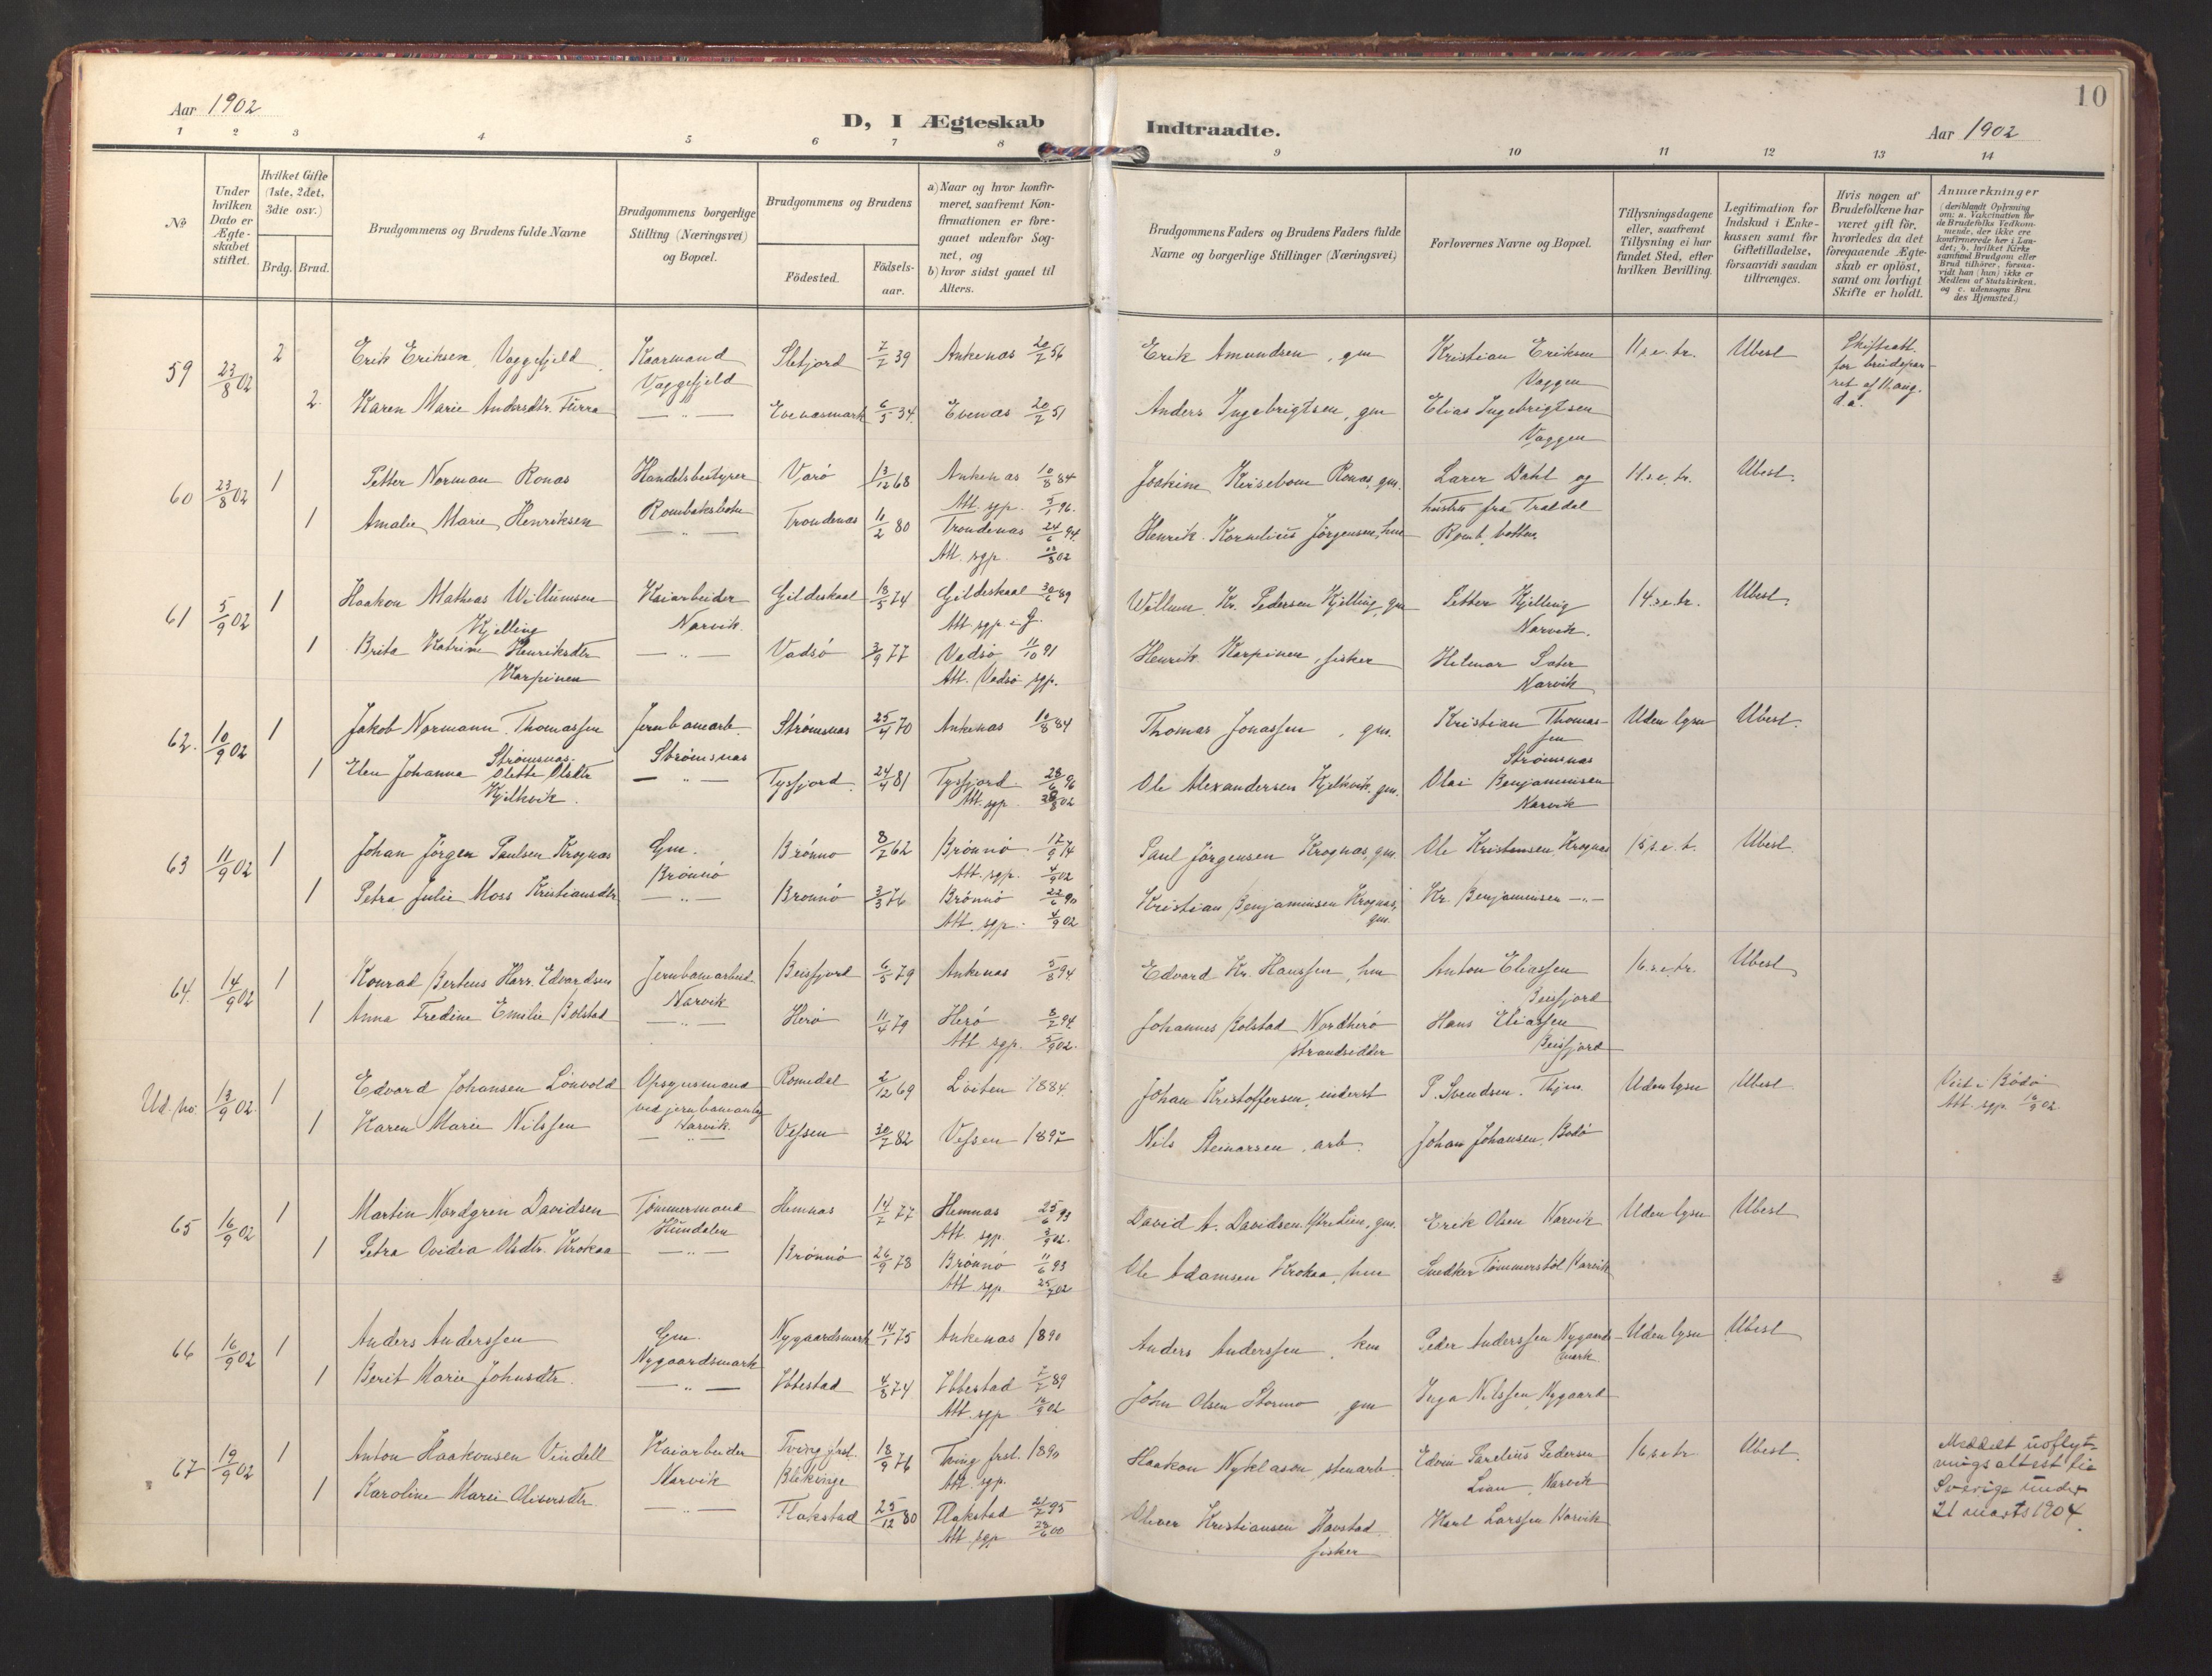 Aar 1902
D, I Ægteskab Indtraadte.
Aar 1902
10
1 2 3 4 5 6 7 8 9 10 11 12 13 14
№
Under hvilken Dato er Ægteskabet stiftet.
Hvilket Gifte (1ste, 2det, 3die osv.)
Brdg. Brud.
Brudgommens og Brudens fulde Navne
Brudgommens borgerlige Stilling (Næringsvei) og Bopæl.
Brudgommens og Brudens
Födested. Födsels-aar.
a) Naar og hvor konfirmeret, saafremt Konfirmationen er foregaaet udenfor Sognet, og
b) hvor sidst gaaet til Alters.
Brudgommens Faders og Brudens Faders fulde Navne og borgerlige Stillinger (Næringsvei)
Forlovernes Navne og Bopæl.
Tillysningsdagene eller, saafremt Tillysning ei har fundet Sted, efter hvilken Bevilling.
Legitimation for Indskud i Enkekassen samt for Giftetilladelse, forsaavidt saadan tiltrænges.
Hvis nogen af Brudefolkene har været gift för, hvorledes da det foregaaende Ægteskab er oplöst, samt om lovligt Skifte er holdt.
Anmærkninger (deriblandt Oplysning om: a. Vakcination for de Brudefolks Vedkommende, der ikke ere konfirmerede her i Landet; b. hvilket Kirkesamfund Brudgom eller Brud tilhörer, forsaavidt han (hun) ikke er Medlem af Statskirken, og c. udensogns Brudes Hjemsted.)
59 23/8 02 2 Erik Eriksen Vaggefjeld Kaarmand Sletjord 7/2 39 Ankenas 20/7 56 Erik Amundsen, gm Kristian Eriksen 11 s.e.tr. Ubest Skifteatt.
Vaggefjeld Vaggen for brudepar-
2 Karen Marie Andersdtr. Turra — " — Evenasmark 6/5 34 Evenas 20/7 51 Anders Ingebrigtsen, gm Elias Ingebrigtsen ret af 11 aug.
Vaggen d.a.
60 23/8 02 1 Petter Norman Ronas Handelsbestyrer Varö 13/12 68 Ankenas 10/8 84 Joakim Kirsebom Ronas, gm. Larer Dahl og 11 s.e.tr. Ubest.
Rombaksbotn Att. sgp. 5/1 96. hustru fra Traldal
1 Amalie Marie Henriksen — " — Trondenas 11/2 80 Trondenas 24/6 94. Henrik Kornelius Jörgensen, hm Romb. botten.
Att. sgp. 02
61 5/9 02 1 Haakon Mathias Willumsen Kaiarbeider Gildeskaal 18/5 74 Gildeskaal 30/6 89 Willum Kr. Pedersen Kjelling, gm Petter Kjelling 14 s.e.tr. Ubest.
Kjelling Narvik. Att. sgp i G. Narvik.
1 Brita Katrine Henriksdtr — " — Vadsö 3/9 77 Vadsö 11/10 91 Henrik Karpinen, fisker Hilmar Sater
Karpinen Att. Vadsö sgp. Narvik
62. 10/9 02 1 Jakob Normann Thomassen Jernbanearb. Strömsnas 25/4 70 Ankenas 10/8 84 Thomas Jonassen, gm. Kristian Thomas- Uden lysn Ubest.
Strömsnas. Strömsnas sen
1 Elen Johanna Olette Olsdtr — " — Tysfjord 24/4 81 Tysfjord 28/6 96 Ole Alexandersen Kjelkvik, gm. Strömsnas
Kjelkvik. Att. sgp. 02 Olai Benjaminsen
Narvik
63 11/9 02 1 Johan Jörgen Paulsen Krognas Gm. Brönnö 8/2 62 Brönnö 17/9 74 Paul Jörgensen Krognas, gm. Ole Kristensen Krognas 15 s.e.t. Ubest.
Brönnö Att. sgp. 4/9 02
1 Petra Julie Moss Kristiansdtr — " — Brönnö 3/3 76 Brönnö 22/6 90 Kristian Benjaminsen Krognas, gm. Kr. Benjaminsen — " —
Att. sgp. 4/9 02
64. 14/9 02 1 Konrad Berteus Edvardsen Jernbanearbeid. Beisfjord 6/5 79 Ankenas 5/8 94 Edvard Kr. Hanssen, hm Anton Eliassen 16 s.e.tr. Ubest
Narvik Beisfjord
1 Anna Fredine Emilie Bolstad — " — Herö 11/4 79 Herö 94 Johannes Bolstad Nordherö Hans Eliassen
Att. sgp. 5/9 02. strandsidder Beisfjord
Ud. No. 13/9 02. 1 Edvard Johansen Lönvold Opsynsmand Romedal 2/12 69 Löiten 1884. Johan Kristoffersen, inderst P. Svendsen. Uden lysn Ubest. Viet i Bodö
ved jernbaneanlg Att. sgp. 02.
1 Karen Marie Nilssen Narvik. — " — Vefsen 30/7 82 Vefsen 1897 Nils Steinarsen, arb. Johan Johansen, Bodö
65 16/9 02 1 Martin Nordgren Davidsen Tömmermand Hemnas 14/7 77 Hemnas 25/6 93 David A. Davidsen, gm. Erik Olsen Narvik Uden lysn Ubest
Hundalen Att. sgp. 3/9 02.
1 Petra Ovidia Olsdtr. Krokaa — " — Brönnö 26/9 78 Brönnö 11/6 93 Ole Adamsen Krokaa, hm Snedker Tömmerstöl Narvik
Att. sgp. 25/7 02
66 16/9 02 1 Anders Anderssen Gm. Nygaardsmark 14/1 75 Ankenas 1890 Anders Anderssen, hm Peder Anderssen Nygaards- Uden lysn Ubest
Nygaardsmark mark.
1 Berit Marie Johnsdtr. — " — Ibbestad 4/8 74 Ibbestad 7/7 89 John Olsen Stormo, gm Inga Nilssen Nygaard
Att. sgp. 02
67 19/9 02 1 Anton Haakonsen Vindell Kaiarbeider Tving frst. 18/9 76 Tving frst. 1890 Haakon Nyklason, stenarb. Edvin Parelius Pedersen 16 s.e.tr Ubest. Meddelt udflyt-
Narvik Blekinge Att. sgp. Lian, Narvik ningsattest til
1 Karoline Marie Oliversdtr. — " — Flakstad 25/12 80 Flakstad 21/7 95 Oliver Kristiansen Havstad Karl Larssen Narvik Sverige under
Att. sgp 28/6 00 fisker 21 marts 1904.